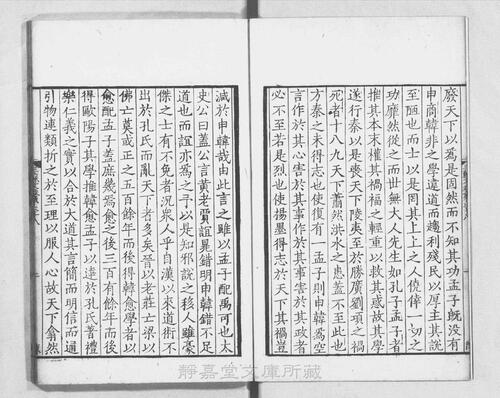 廢天下以為是固然而不知其功孟子既没有
申商韓非之學違道而趨利殘民以厚主其說
至陋也而士以是罔其上上之人僥倖一切之
功靡然從之而世無大人先生如孔子孟子者
推其本末權其禍福之輕重以救其惑故其學
遂行秦以是喪天下陵夷至於勝廣劉項之禍
死者十八九天下蕭然洪水之患蓋不至此也
方秦之未得志也使復有一孟子則申韓為空
言作於其心害於其事作於其事害於其政者
必不至若是烈也使揚墨得志於天下其禍豈
減於申韓哉由此言之雖以孟子配禹可也太
史公曰蓋公言黃老賈誼晁錯明申韓錯不足
道也而誼亦為之予以是知邪說之移人雖豪
傑之士有不免者况衆人乎自漢以來道術不
出於孔氏而亂天下者多矣晉以老莊亡梁以
佛亡莫或正之五百餘年而後得韓愈學者以
愈配孟子蓋庶幾焉愈之後三百有餘年而後
得歐陽子其學推韓愈孟子以達於孔氏著禮
樂仁義之實以合於大道其言簡而明信而通
引物連類折之於至理以服人心故天下翕然
靜嘉堂文庫所藏